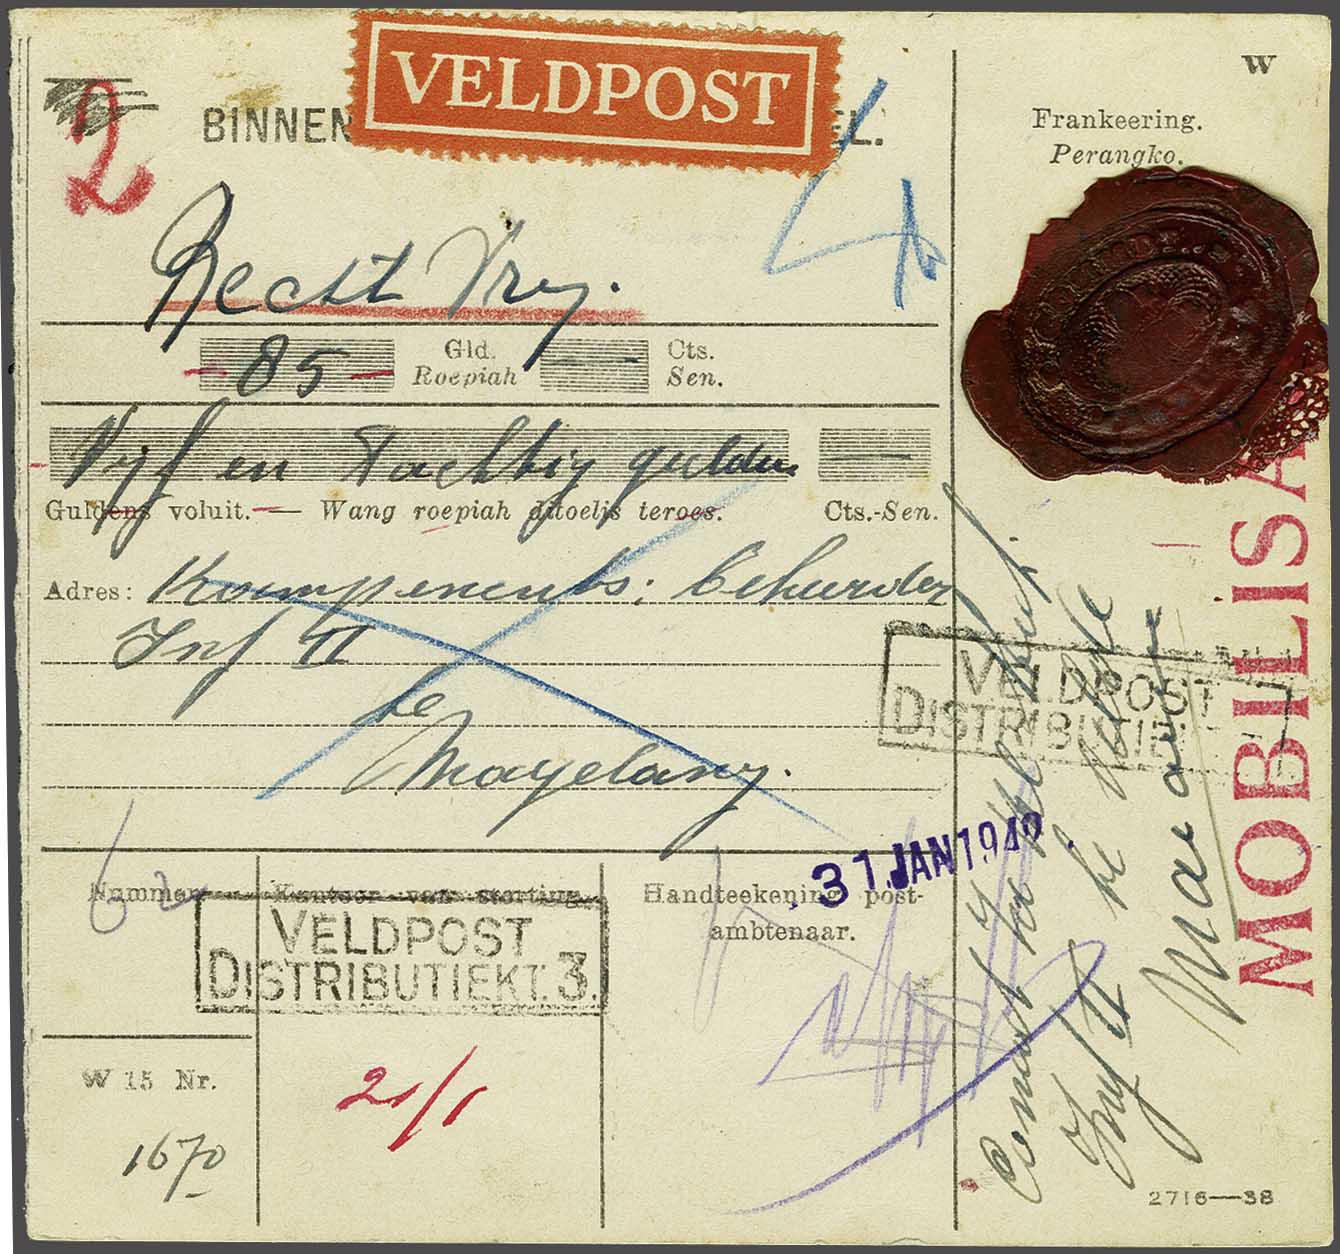 VELDPOST
W
2
BINNEN EL.
Frankeering.
Perangko.
Recht Vry.
85 Gld. Cts.
Roepiah Sen.
Vyf en Tachtig gulden
Guldens voluit. — Wang roepiah ditoelis teroes. Cts.-Sen.
Adres: beheerder
Inf II
te
Magelang.
VELDPOST
DISTRIBUTIE
MOBILISA
31 JAN 1942
Nummer Kantoor van storting. Handteekening post-
ambtenaar.
VELDPOST
DISTRIBUTIEKT. 3.
W 15 Nr.
1670
21/1
Inf II
2716—38